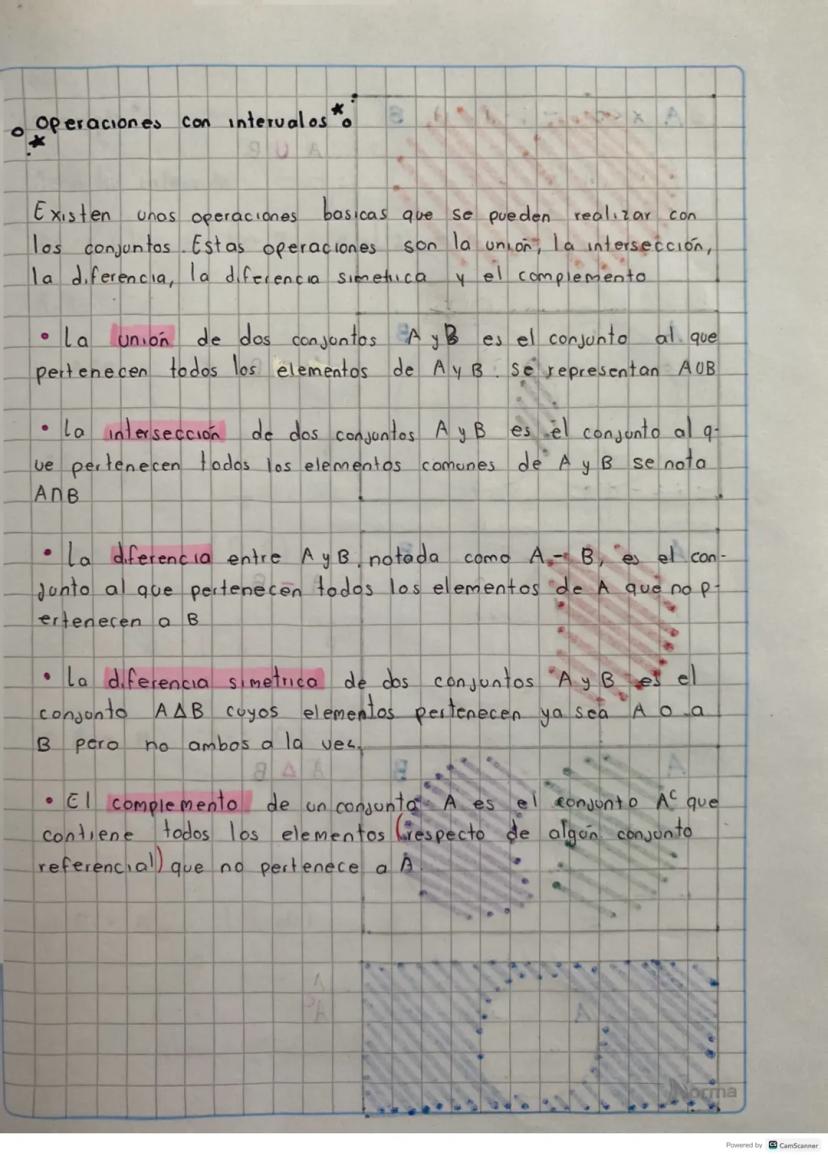 Operaciones con intervalos
Existen unas operaciones basicas que se pueden realizar con
los conjuntos. Estas operaciones son la unión, la intersección,
la diferencia, la diferencia simetrica y el complemento
• La unión de dos conjuntos A y B es el conjunto al que
pertenecen todos los elementos de A y B. Se representan AUB
• La intersección de dos conjuntos A y B es el conjunto al q-
ue pertenecen todos los elementos comunes de A y B se nota
A∩B
• La diferencia entre A y B, notada como A - B, es el con-
junto al que pertenecen todos los elementos de A que no p-
ertenecen a B
• La diferencia simetrica de dos conjuntos A y B es el
conjunto A∆B cuyos elementos pertenecen ya sea A o a
B pero no ambos a la vez.
• El complemento de un conjunto A es el conjunto Aᶜ que
contiene todos los elementos (respecto de algún conjunto
referencial) que no pertenece a A
Norma
Powered by CS CamScanner